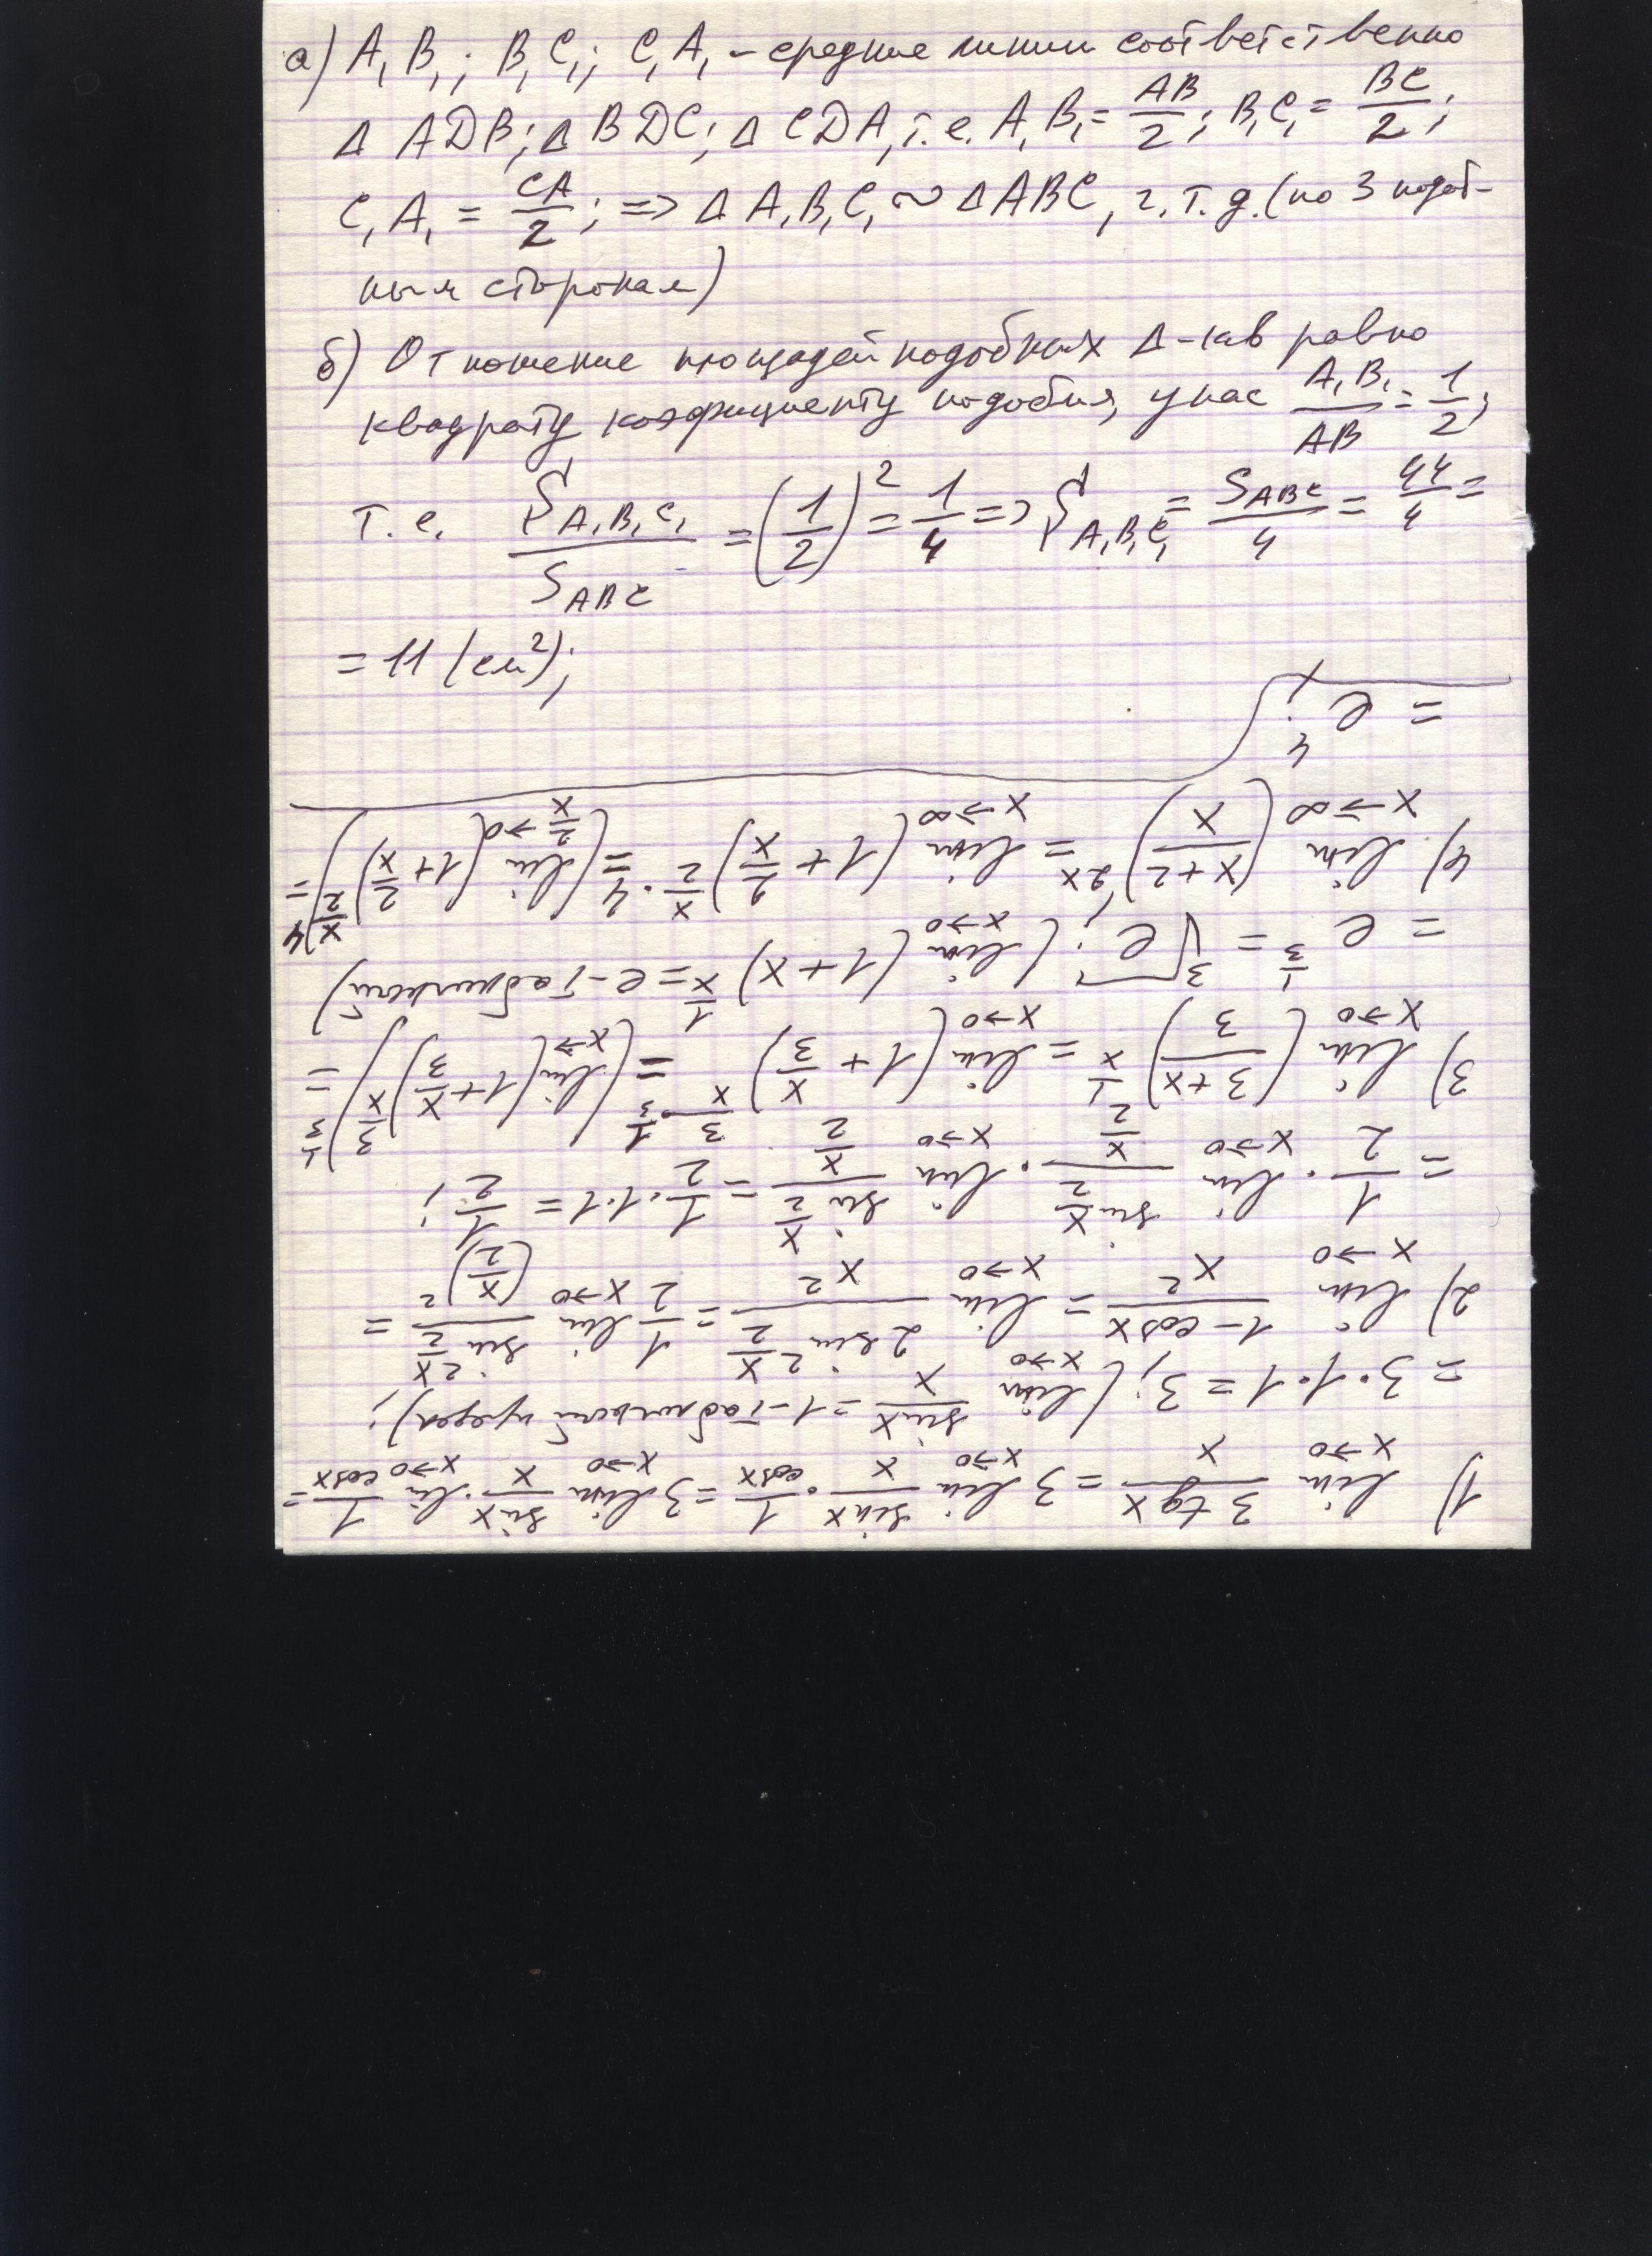 а) A₁B₁; B₁C₁; C₁A₁ – средние линии соответственно
Δ ADB; Δ BDC; Δ CDA, т.е. A₁B₁ = AB/2; B₁C₁ = BC/2;
C₁A₁ = CA/2; => Δ A₁B₁C₁ ~ Δ ABC, ч.т.д. (по 3 подоб-
ным сторонам)
б) Отношение площадей подобных Δ-ков равно
квадрату коэфициенту подобия, у нас A₁B₁/AB = 1/2;
т.е. S A₁B₁C₁ / S ABC = (1/2)² = 1/4 => S A₁B₁C₁ = S ABC/4 = 44/4 =
= 11 (см²);
1) lim x→0 3tgx/x = 3 lim x→0 sinx/x · 1/cosx = 3 lim x→0 sinx/x · lim x→0 1/cosx =
= 3·1·1 = 3; (lim x→0 sinx/x = 1 – табличный предел);
2) lim x→0 (1-cosx)/x² = lim x→0 (2 sin² x/2)/x² = 1/2 lim x→0 (sin² x/2)/(x/2)² =
= 1/2 · lim x→0 (sin x/2)/(x/2) · lim x→0 (sin x/2)/(x/2) = 1/2 · 1·1 = 1/2;
3) lim x→0 ((3+x)/3)^(1/x) = lim x→0 (1 + x/3)^(3/x · 1/3) = (lim x→ (1 + x/3)^(3/x))^(1/3) =
= e^(1/3) = ³√e; (lim x→0 (1+x)^(1/x) = e – табличный)
4) lim x→∞ ((x+2)/x)^(2x) = lim x→∞ (1 + 2/x)^(x/2 · 4) = (lim 2/x→0 (1 + 2/x)^(x/2))^4 =
= e⁴;